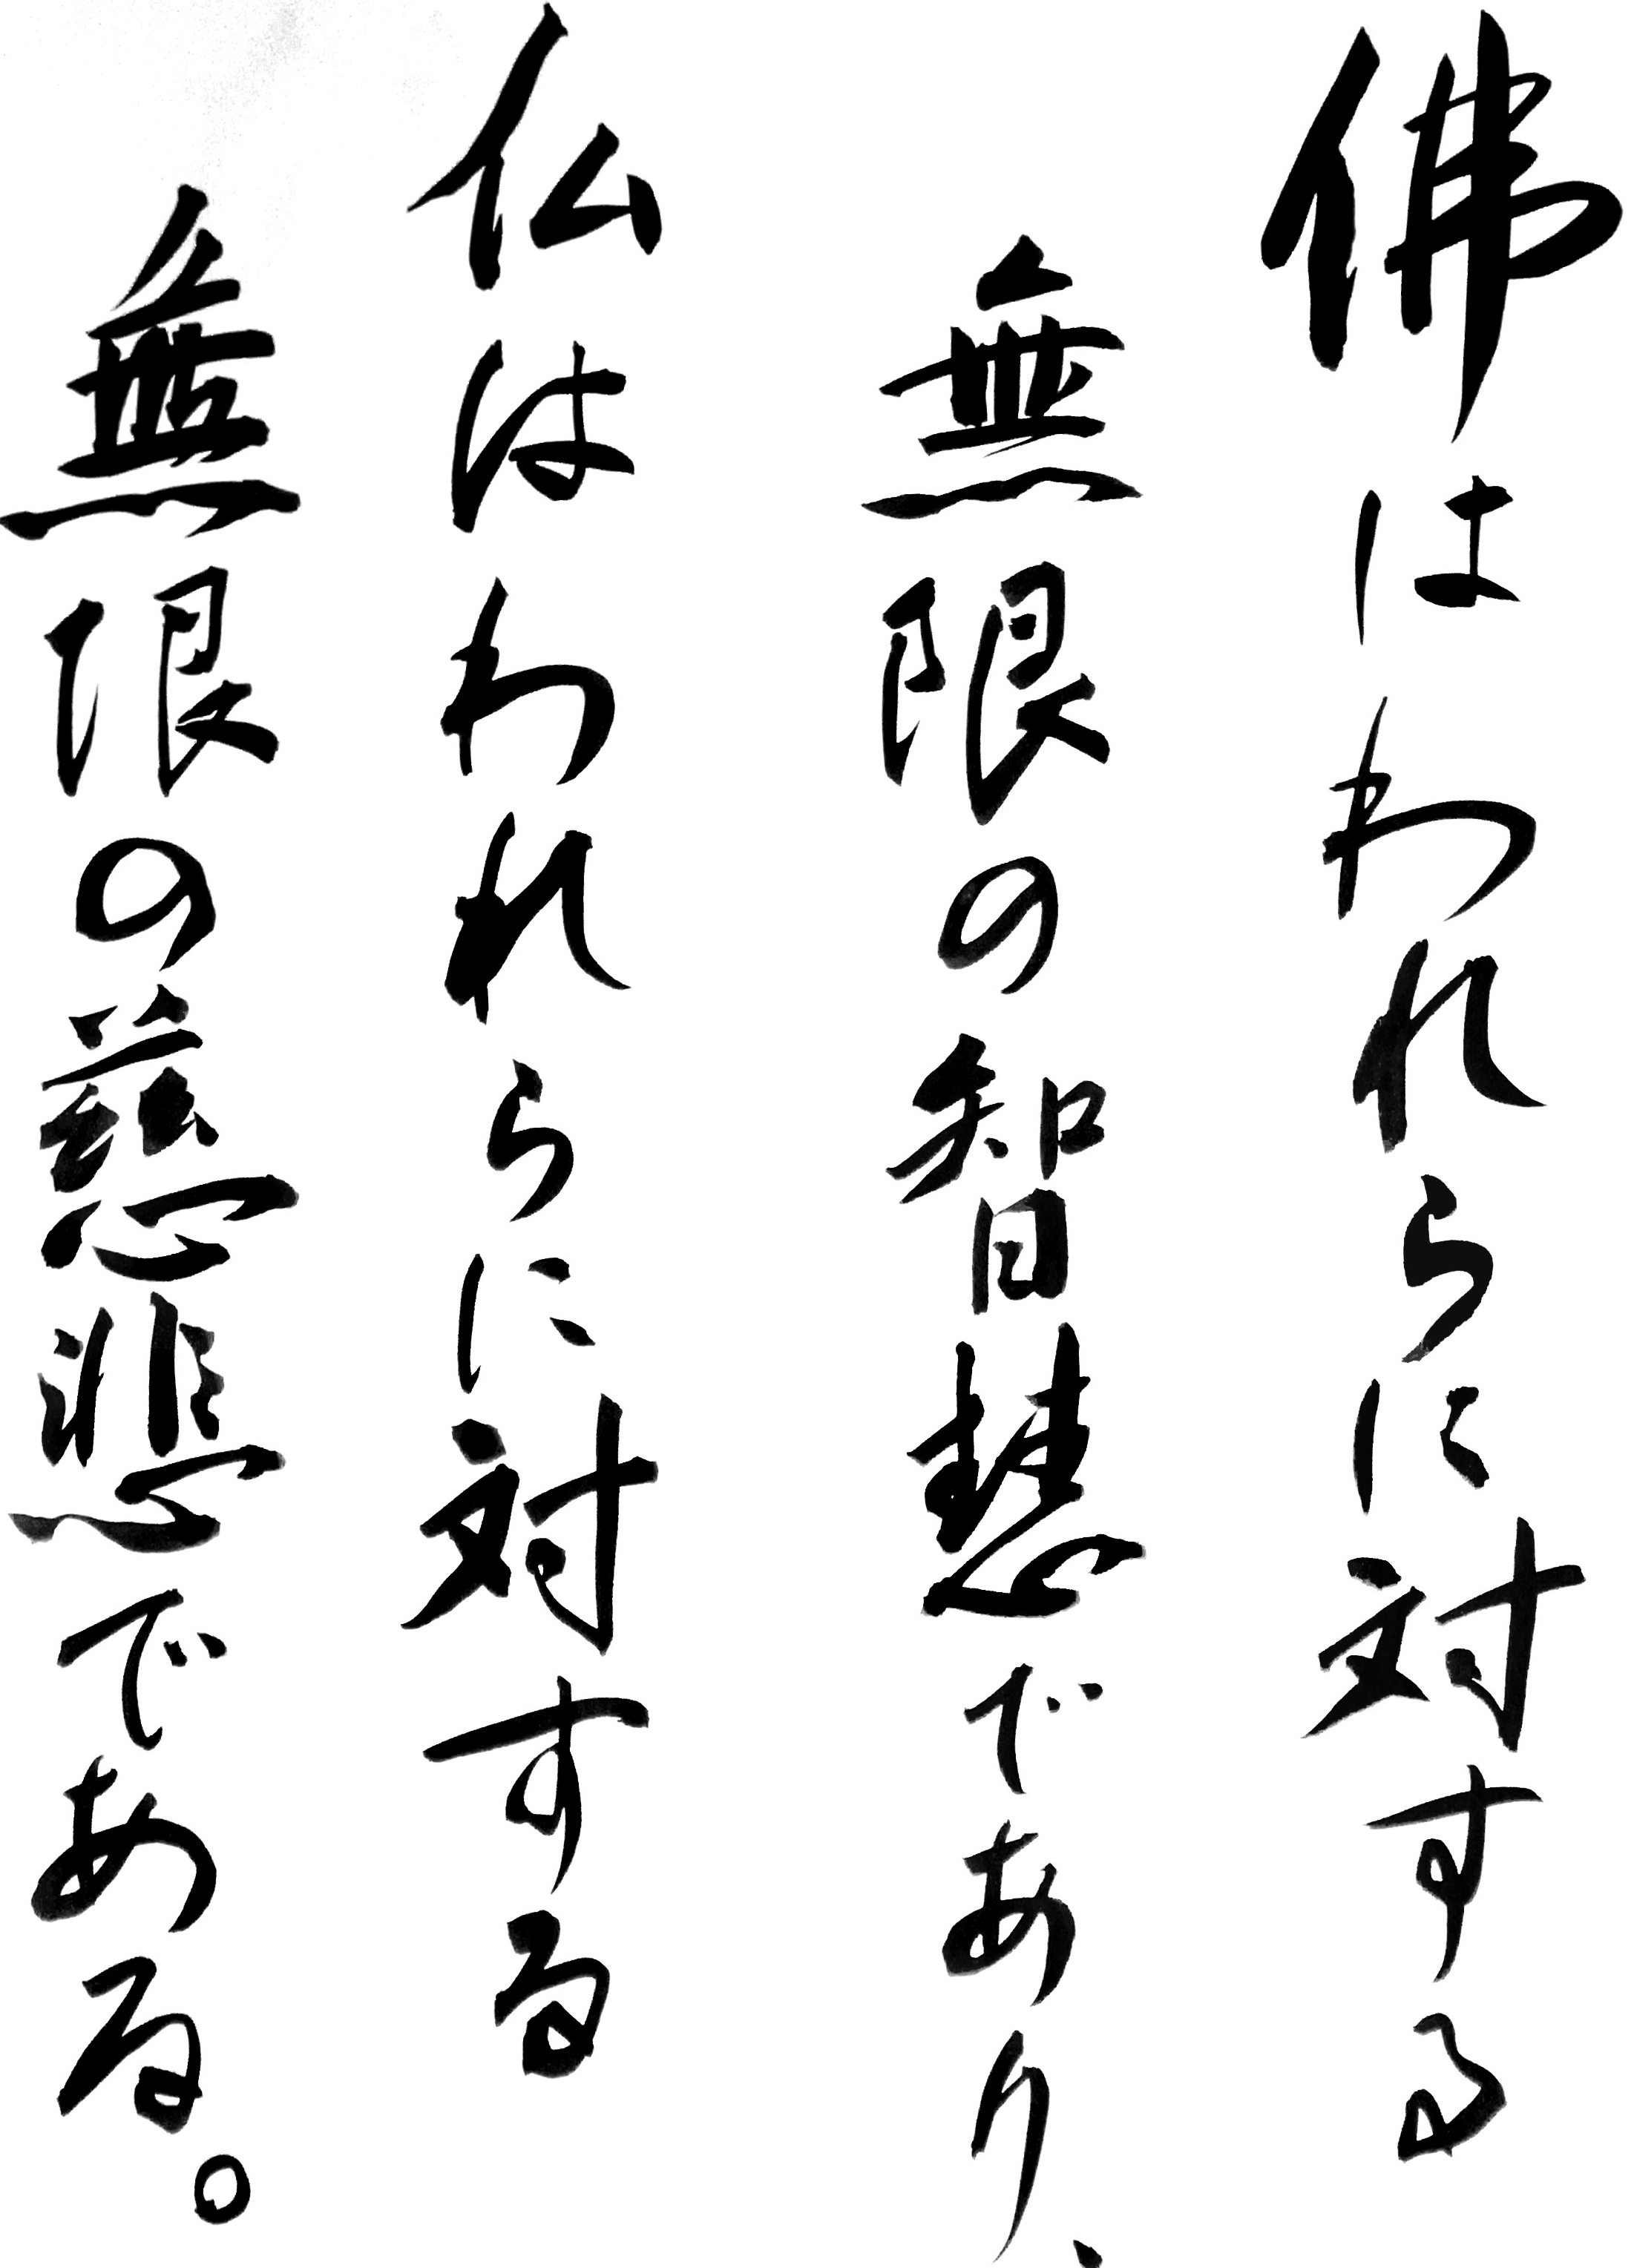 佛はわれらに対する
無限の智慧であり、
仏はわれらに対する
無限の慈悲である。